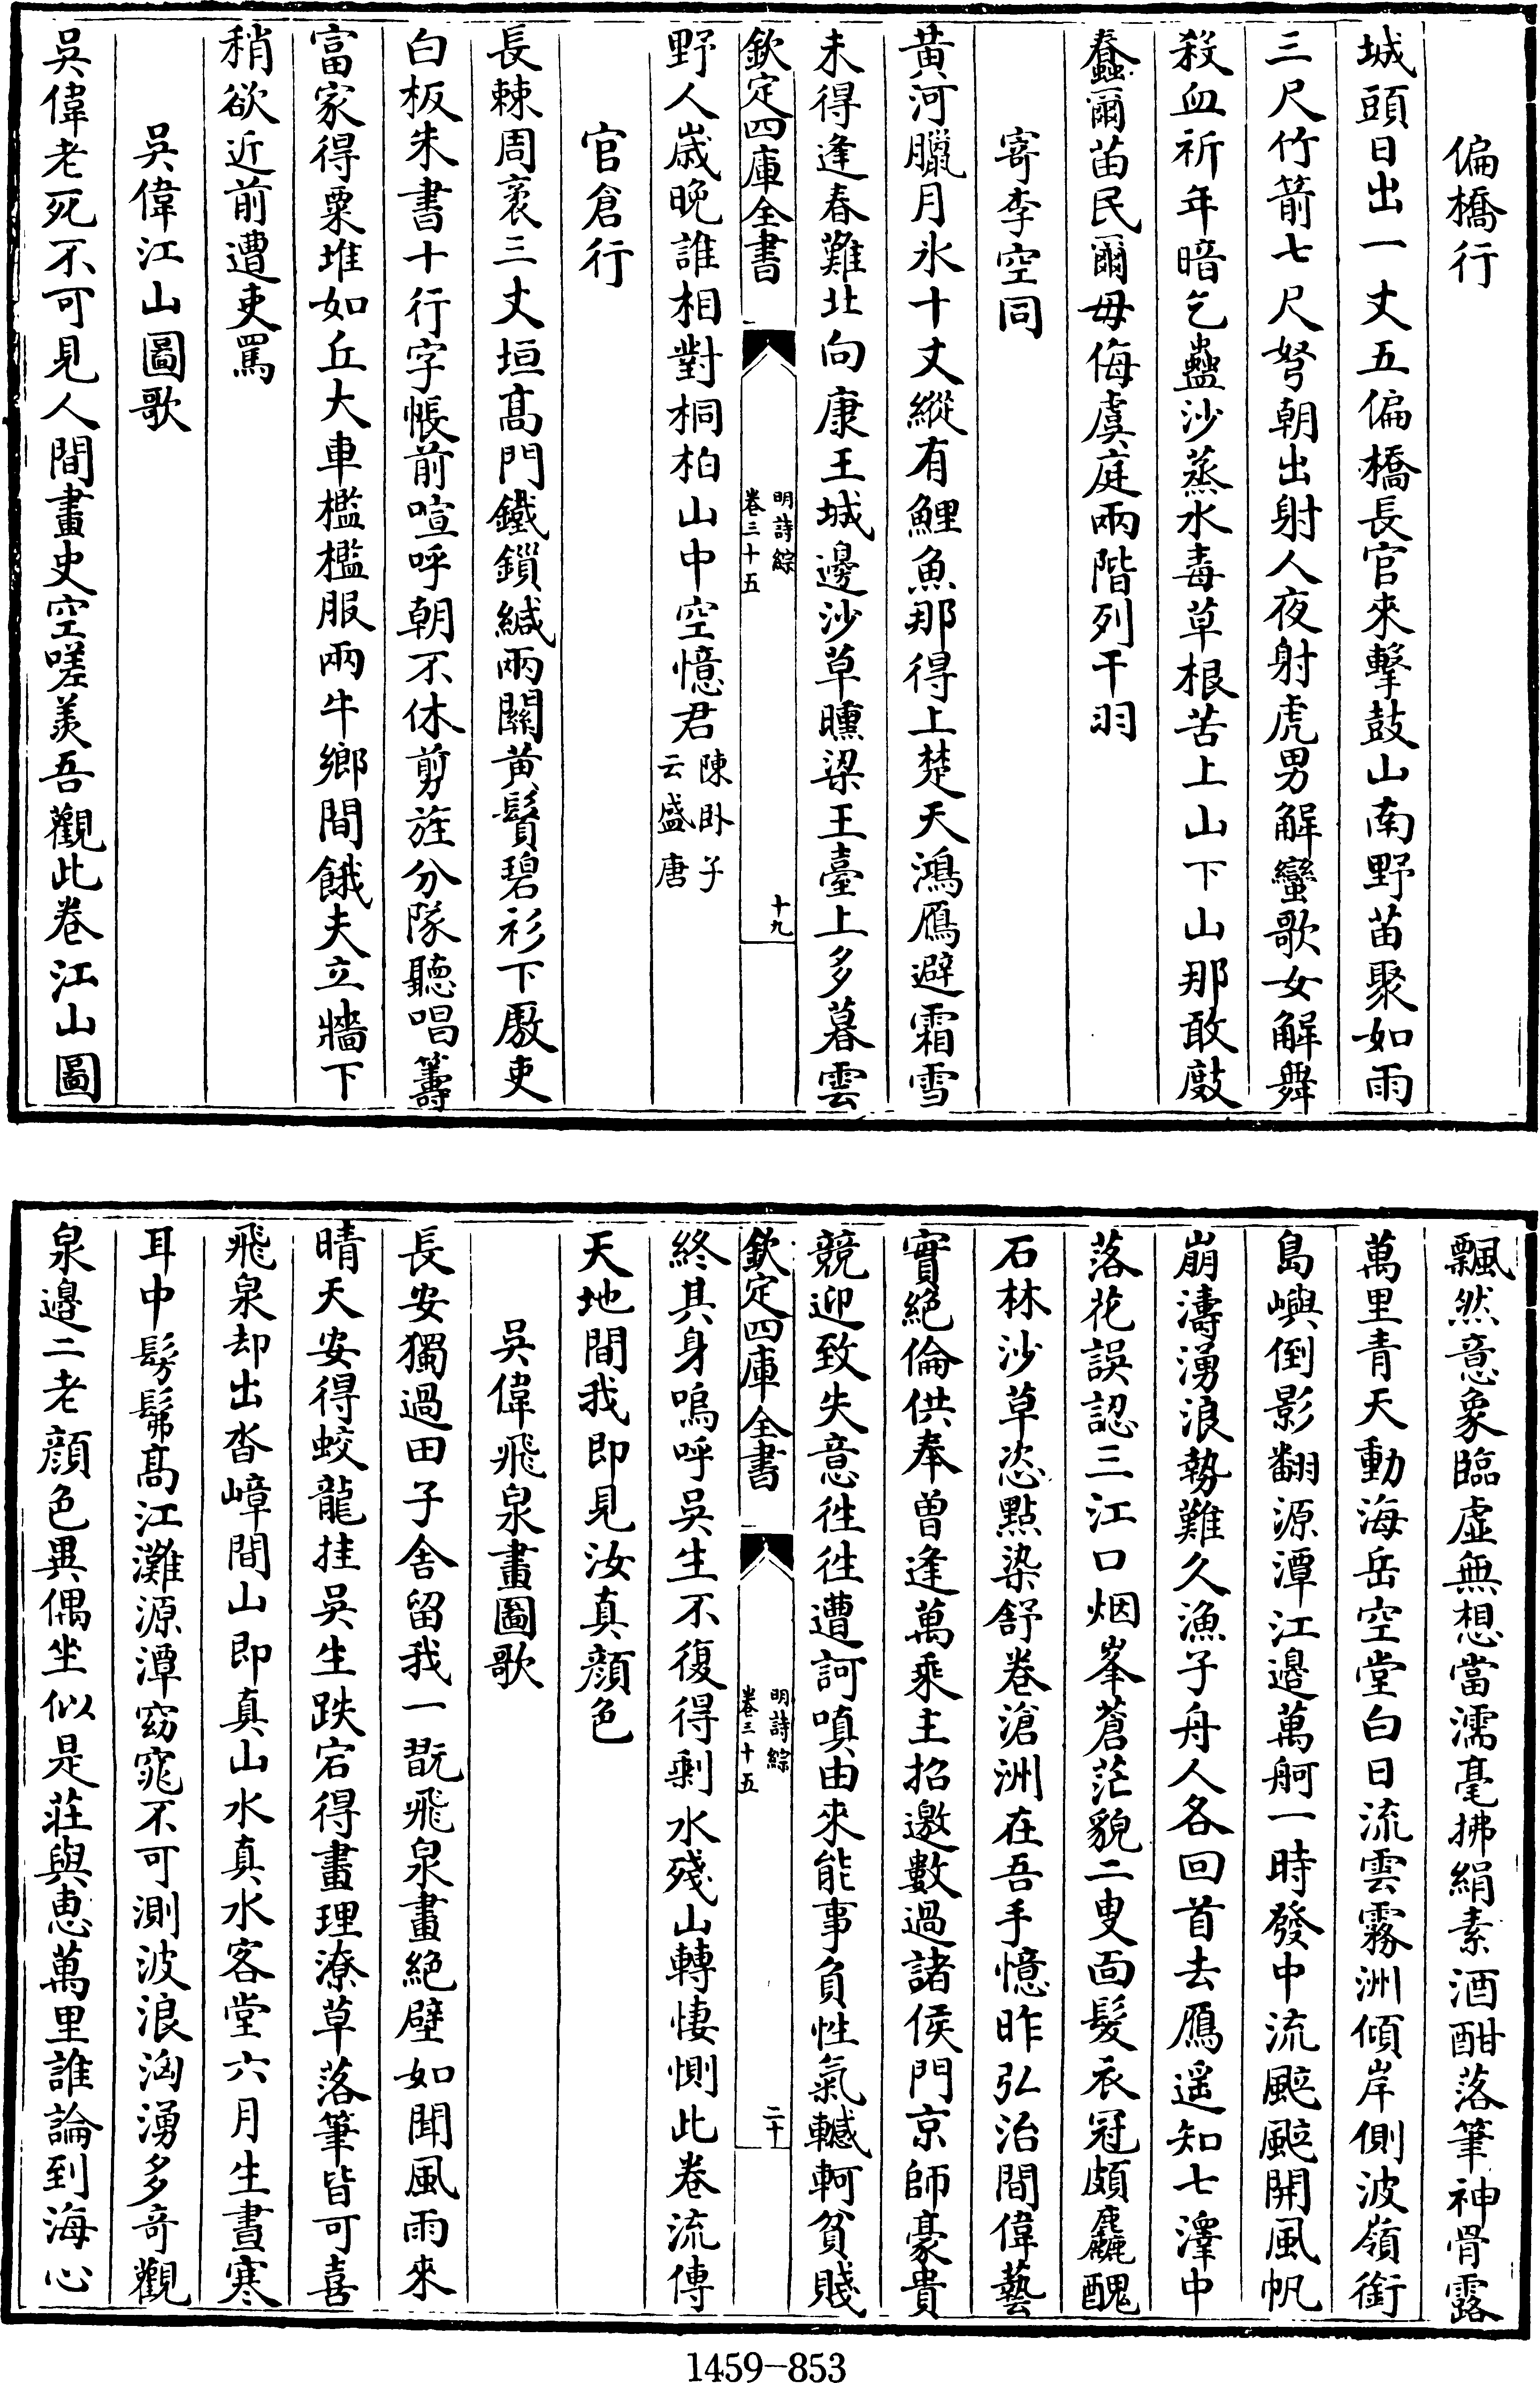 偏橋行
城頭日出一丈五偏橋長官來擊鼓山南野苗聚如雨
三尺竹箭七尺弩朝出射人夜射虎男解蠻歌女解舞
殺血祈年暗乞蠱沙蒸水毒草根苦上山下山那敢敲
蠢爾苗民爾毋侮虞庭兩階列干羽
寄李空同
黄河臘月氷十丈縱有鯉魚那得上楚天鴻鴈避霜雪
未得逢春難北向康王城邊沙草曛梁王臺上多暮雲
欽定四庫全書
明詩綜
卷三十五
十九
野人歲晚誰相對桐柏山中空憶君陳卧子
云盛唐
官倉行
長棘周袤三丈垣髙門鐵鎖緘兩關黄鬚碧衫下廒吏
白板朱書十行字帳前喧呼朝不休剪旌分隊聽唱籌
富家得粟堆如丘大車檻檻服兩牛鄉間餓夫立牆下
稍欲近前遭吏罵
吳偉江山圖歌
吳偉老死不可見人間畫史空嗟羨吾觀此卷江山圖
飄然意象臨虚無想當濡毫拂絹素酒酣落筆神骨露
萬里青天動海岳空堂白日流雲霧洲傾岸側波嶺銜
島嶼倒影翻源潭江邊萬舸一時發中流颭颭開風帆
崩濤湧浪勢難久漁子舟人各回首去鴈遥知七澤中
落花誤認三江口烟峯蒼茫貌二叟面髮衣冠頗麤醜
石林沙草恣點染舒卷滄洲在吾手憶昨弘治間偉藝
實絕倫供奉曾逢萬乘主招邀數過諸侯門京師豪貴
競迎致失意徃徃遭訶嗔由來能事負性氣轗軻貧賤
欽定四庫全書
明詩綜
卷三十五
二十
終其身嗚呼吳生不復得剩水殘山轉悽惻此卷流傳
天地間我即見汝真顔色
吳偉飛泉畫圖歌
長安獨過田子舍留我一翫飛泉畫絕壁如聞風雨來
晴天安得蛟龍挂吳生跌宕得畫理潦草落筆皆可喜
飛泉却出沓嶂間山即真山水真水客堂六月生晝寒
耳中髣髴髙江灘源潭窈窕不可測波浪洶湧多竒觀
泉邉二老顔色異偶坐似是莊與恵萬里誰論到海心
1459-853